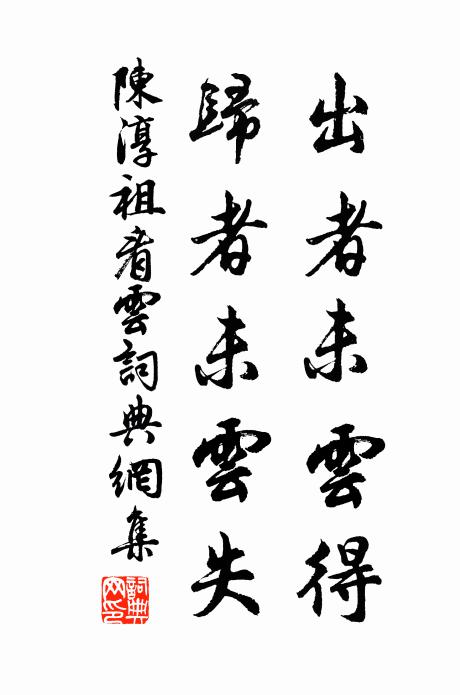 出者未雲得
歸者未雲失
陳淳祖看雲詞典網集
詞典網印